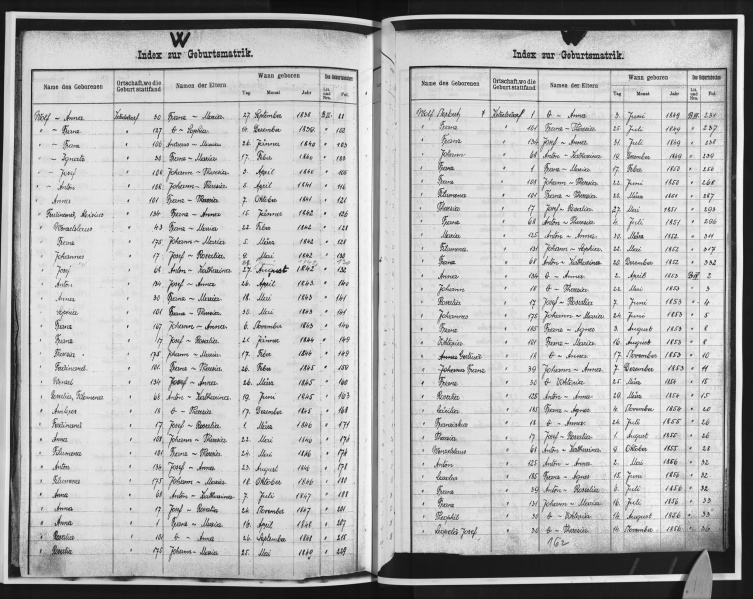 W
Index zur Geburtsmatrik.
Name des Geborenen
Ortschaft, wo die Geburt stattfand
Namen der Eltern
Wann geboren
Tag
Monat
Jahr
Des Geburtsbuches
Lit. und Nro.
Fol.
Wolf ~ Anna 30 Franz ~ Maria 27 September 1838 88
" ~ Franz 127 ~ Sophia 14 Dezember 1839 102
" ~ Franz 100 ~ Maria 26 Jänner 1840 103
" ~ Ignatz 30 Franz ~ Maria 17 Feber 1840
" ~ Josef 108 Johann ~ Theresia 3 April 1840
" ~ Anton 108 Johann ~ Theresia 8 April 1841 116
" Anna 101 Franz ~ Theresia 7 Oktober 1841 121
" Ferdinand, 134 Franz ~ Anna 15 Jänner 1842 126
" Wenzeslaus 43 Franz ~ Maria 22 Feber 1842 128
" Franz 175 Johann ~ Maria 5 März 1842 128
" Johannes 17 Josef ~ Rosalia 8 Mai 1842 130
" Josef 68 Anton ~ Katharina 27 August 1842 132
" Anton 134 Josef ~ Anna 26 April 1843 140
" Anna 30 Franz ~ Maria 18 Mai 1843 141
" Sophia 101 Franz ~ Theresia 30 Mai 1843 141
" Franz 167 Johann ~ Anna 6 November 1843 146
" Franz 17 Josef ~ Rosalia 21 Jänner 1844 149
" Theresia 175 Johann ~ Maria 17 Feber 1844 149
" Ferdinand 101 Franz ~ Theresia 26 Feber 1845 159
" Wenzel 134 Josef ~ Anna 26 März 1845 160
" Filomena 68 Anton ~ Katharina 19 Juni 1845 163
" 18 ~ Theresia 17 Dezember 1845 168
" Ferdinand 17 Josef ~ Rosalia 1 März 1846 171
" Anna 108 Johann ~ Theresia 22 Mai 1846 174
" Filomena 101 Franz ~ Theresia 24 Mai 1846 174
" Anton 134 Josef ~ Anna 23 August 1846 178
" Filomena 175 Johann ~ Maria 18 Oktober 1846 180
" Anna 68 Anton ~ Katharina 7 Juli 1847 188
" Anna 17 Josef ~ Rosalia 24 November 1847 201
" Anna 1 Franz ~ Maria 16 April 1848 207
" Rosalia 101 ~ Anna 26 September 1848 215
" Rosalia 175 Johann ~ Maria 25 Mai 1849 229
Index zur Geburtsmatrik.
Name des Geborenen
Ortschaft, wo die Geburt stattfand
Namen der Eltern
Wann geboren
Tag
Monat
Jahr
Des Geburtsbuches
Lit. und Nro.
Fol.
Wolf 1 ~ Anna 3 Juni 1849 230
" Franz 101 Franz ~ Theresia 25 Juli 1849 237
" Franz 134 Josef ~ Anna 31 Juli 1849 238
" Johann 68 Anton ~ Katharina 18 Dezember 1849 239
" Franz 1 Franz ~ Maria 17 Feber 1850 256
" Franz 108 Johann ~ Theresia 22 Juni 1850 268
" Filomena 101 Franz ~ Theresia 22 März 1851 287
" Theresia 17 Josef ~ Rosalia 27 Mai 1851 293
" Franz 68 Anton ~ Theresia 4 Juli 1851 296
" Maria 125 Anton ~ Anna 30 März 1852 311
" Filomena 131 Johann ~ Sophia 22 Mai 1852 317
" Franz 68 Anton ~ Katharina 20 Dezember 1852 332
" Anna 134 ~ Anna 2 April 1853 2
" Johann 18 ~ Theresia 22 Mai 1853 3
" Rosalia 17 Josef ~ Rosalia 7 Juni 1853 4
" Johannes 175 Johann ~ Maria 24 Juni 1853 5
" Franz 185 Franz ~ Agnes 3 August 1853 8
" Viktoria 101 Franz ~ Maria 16 August 1853 8
" Anna 18 ~ Anna 17 November 1853 10
" Johannes Franz 39 Johann ~ Anna 7 Dezember 1853 11
" Franz 30 ~ Viktoria 25 März 1854 15
" Rosalia 125 Anton ~ Anna 29 März 1854 15
" Cäcilia 185 Franz ~ Agnes 4 November 1854 20
" Franziska 18 ~ Anna 24 Juli 1855 26
" Theresia 17 Josef ~ Rosalia 1 August 1855 26
" Wenzeslaus 68 Anton ~ Katharina 9 August 1855 28
" Anton 125 Anton ~ Anna 2 Mai 1856 32
" 185 Franz ~ Agnes 15 Juni 1856 32
" Franz 39 Anton ~ Rosalia 6 Juli 1856 32
" Franz 131 Johann ~ Maria 16 Juli 1856 33
" Theophil 30 ~ Viktoria 14 August 1856 33
" Leopold Josef 30 ~ Theresia 14 November 1856 36
162